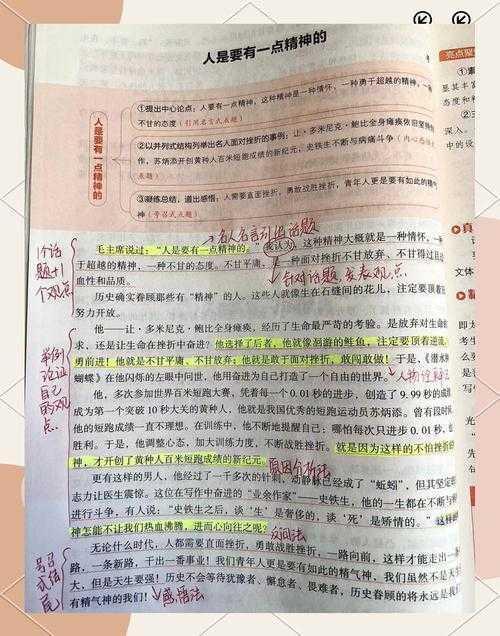 人是要有一点精神的
亮点聚
人是要有一点精神的
①提出中心论点：人要有一点精神，这种精神是一种情怀，一种勇于超越的精神，一
不甘的态度（引用名言式点题）
②以并列式结构列举出名人面对挫折的事例：让·多米尼克·鲍比全身瘫痪依旧坚持
作，苏炳添开创黄种人百米短跑成绩的新纪元，史铁生不断与病痛斗争
点题）
③凝练总结，道出感悟：人需要直面挫折，勇敢战胜挫折，青年人更是要有如此的精气
神（号召式点题）
名人名言引出话题
毛主席说过：“人是要有一点精神的。”我认为，这种精神大概就是一种情怀，一
于超越的精神，一种不甘的态度。不甘平庸，一种面对挫折不甘放弃，不甘得过且
血性和品质。
针对话题，发表观点
1个话
题+1
个观点
历史确实眷顾那些有“精神”的人。这些人就像生在石缝间的花儿，注定要首
努力开放。
他——让·多米尼克·鲍比全身瘫痪，经历了生命最严苛的考验。是放弃对生命
求，还是让生命在挫折中奋进？他选择了后者，他就像洄游的鲑鱼，注定要顶着逆流，
勇前进！他就是不甘平庸，不甘放弃；他就是敢于面对挫折，敢闯敢做！于是，《潜水钟
蝴蝶》在他闪烁的左眼中问世，他用奋进为自己打造了一个自由的世界。
举例
论证
自己
的观
点
他，多次参加世界百米短跑大赛，凭着每一个 0.01 秒的进步，创造了 9.99 秒的成
成为第一个突破 10 秒大关的黄种人，他就是我国优秀的短跑运动员苏炳添。曾有段时
他的短跑成绩一直不理想。在训练中，他不断地提醒自己：哪怕每次只进步 0.01 秒，也
胜利。于是，他调整心态，加大训练力度，不断战胜挫折。就是因为这样的不怕挫折的
神，才开创了黄种人百米短跑成绩的新纪元。
原因分析法
更有这样的男人，他经过了一千多次的针刺，动静脉已经成了“蚯蚓”，但其坚定
志力让医生震惊。这位在写作中奋进的“业余作家”——史铁生，他的一生都在不断与
进行斗争，有人说：“史铁生之后，谈‘生’是奢侈的，谈‘死’是矫情的。”这样的
神怎能不让我们热血沸腾，进而心向往之呢？
反问法
无论什么时代，人都需要直面挫折，勇敢战胜挫折，一路向前，这样才能走出一
路，一条新路，干出一番事业！我们青年人更是要有如此的精气神，我们虽然不是天
大，但是天生要强！历史不会等待犹豫者、懈怠者、畏难者，历史眷顾的将永远是
有精气神的我们！
感悟法
号召
式结
尾